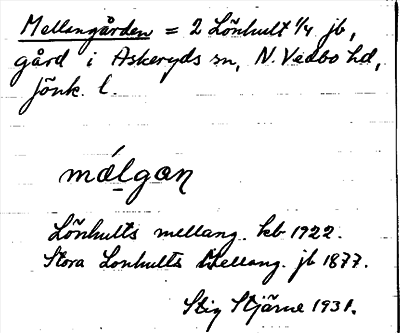 Mellangården = 2 Lönhult 1/4 jb,
gård i Askeryds sn, N. Vedbo hd,
Jönk. l.
mál̠gan
Lönhults mellang. kb 1922.
Stora Lonhults Mellang. jb 1877.
Stig Stjärne 1931.